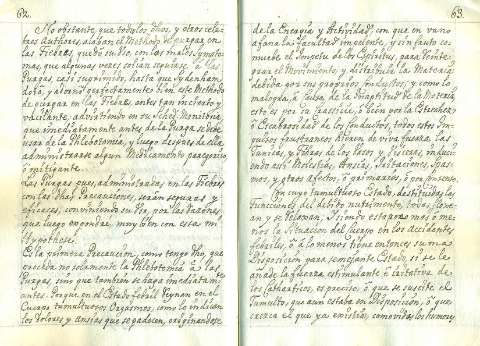 62.
No obstante, que todos los dhos, y otros cele-
bres Authores, alaban el Methodo de purgar en
las Fiebres, quedó su uso, con los malos Symto-
mas, que algunas veces solian seguirse. De las
Purgas, casi suprimido, hasta que Sydenham
dotó, y adornó perfectamente bien este Methodo
de purgar en las Fiebres, antes tan incierto y
vacilante, advirtiendo en su Sched. Monitoria
que imediatamente antes de la Purga, se debe
usar de la Phlebotomia, y luego despues de ella
administrarse algun Medicamento paregorico
ò mitigante.
Las Purgas pues, administradas en las Fiebres
con las dhas Precauciones, serán seguras y
eficaces, conviniendo su uso, por las razones
que luego expondré, muy bien con esta mi
Hypothese.
Es la primera Precaucion, como tengo dho, que
preceda no solamente la Phlebotomia à las
Purgas, sino que tambien se haga imediatam.
antes. Porque en el Estado febril reynan en el
Cuerpo tumultuosos Orgasmos, como lo indican
los dolores y ansias que se padecen, originandose
63.
de la Energia y Actividad, con que en vano
afana la facultad impelente, y sin fruto co-
mueve el Impetu de los Espiritus, para
el Movimiento, y distribuir la Materia
debida por sus proprios conductos; y como lo
malogra, à causa de la Ineptitud de la Materia
esto es por su crassicie, ò bien por la Estrechez
ò Escabrosidad de los Conductos, todos estos Im-
pulsos frustraneos tiran
Tunicas, y Fibras de los Vasos y Visceras, inducien-
do assi Molestias, Ansias, Irritaciones, Spas-
mos, y otros afectos, ò primarios, ò por consenso.
En cuyo tumultuoso Estado, destituidas las
funciones del debido nutrimento, todas
y se relaxan, y siendo esta poco mas ò me-
nos la Situacion del Cuerpo en los accidentes
febriles, ò à lo menos tiene entonces suma
Disposicion para semejante Estado, si se le
añade la fuerza estimulante ò irritativa de
los Catharticos, es preciso ò que se suscite el
Tumulto, que aun estaba en Disposicion, ò que
crezca el que ya existia, comovidos los humores